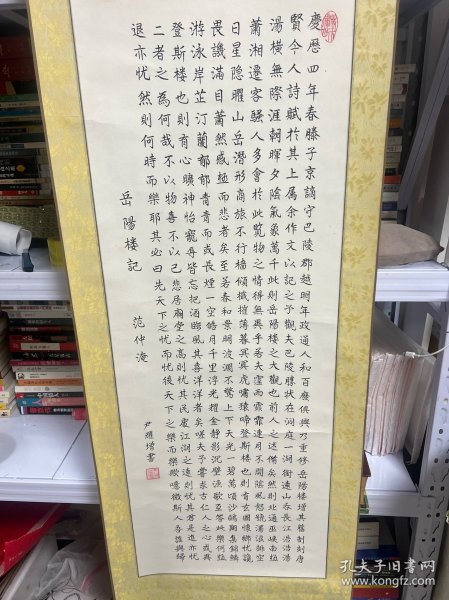 慶歷四年春滕子京謫守巴陵郡越明年政通人和百廢俱興乃重修岳陽樓增其舊制刻唐
賢今人詩賦於其上属余作文以記之予觀夫巴陵勝狀在洞庭一湖銜遠山吞長江浩浩湯
湯橫無際涯朝暉夕陰氣象萬千此則岳陽樓之大觀也前人之述備矣然則北通巫峽南極
瀟湘遷客騷人多會於此覽物之情得無異乎若夫霪雨霏霏連月不開陰風怒號濁浪排空
日星隱曜山岳潛形商旅不行檣傾摧薄暮冥冥虎嘯猿啼登斯樓也則有去國懷鄉憂讒
畏譏滿目蕭然感極而悲者矣至若春和景明波瀾不驚上下天光一碧萬頃沙鷗翔集錦鱗
游泳岸芷汀蘭郁郁青青而或長煙一空皓月千里浮光耀金靜影沉璧漁歌互答此樂何極
登斯楼也則有心曠神怡寵辱皆忘把酒臨風其喜洋洋者矣嗟夫予嘗求古仁人之心或異
二者之為何哉不以物喜不以己悲居廟堂之高則忧其民處江湖之遠則忧其君是進亦忧
退亦忧然則何時而樂耶其必曰先天下之忧而忧後天下之樂而樂歟噫微斯人吾誰與歸
岳陽楼記 范仲淹
尹耀增書
孔夫子旧书网
www.kongfz.com